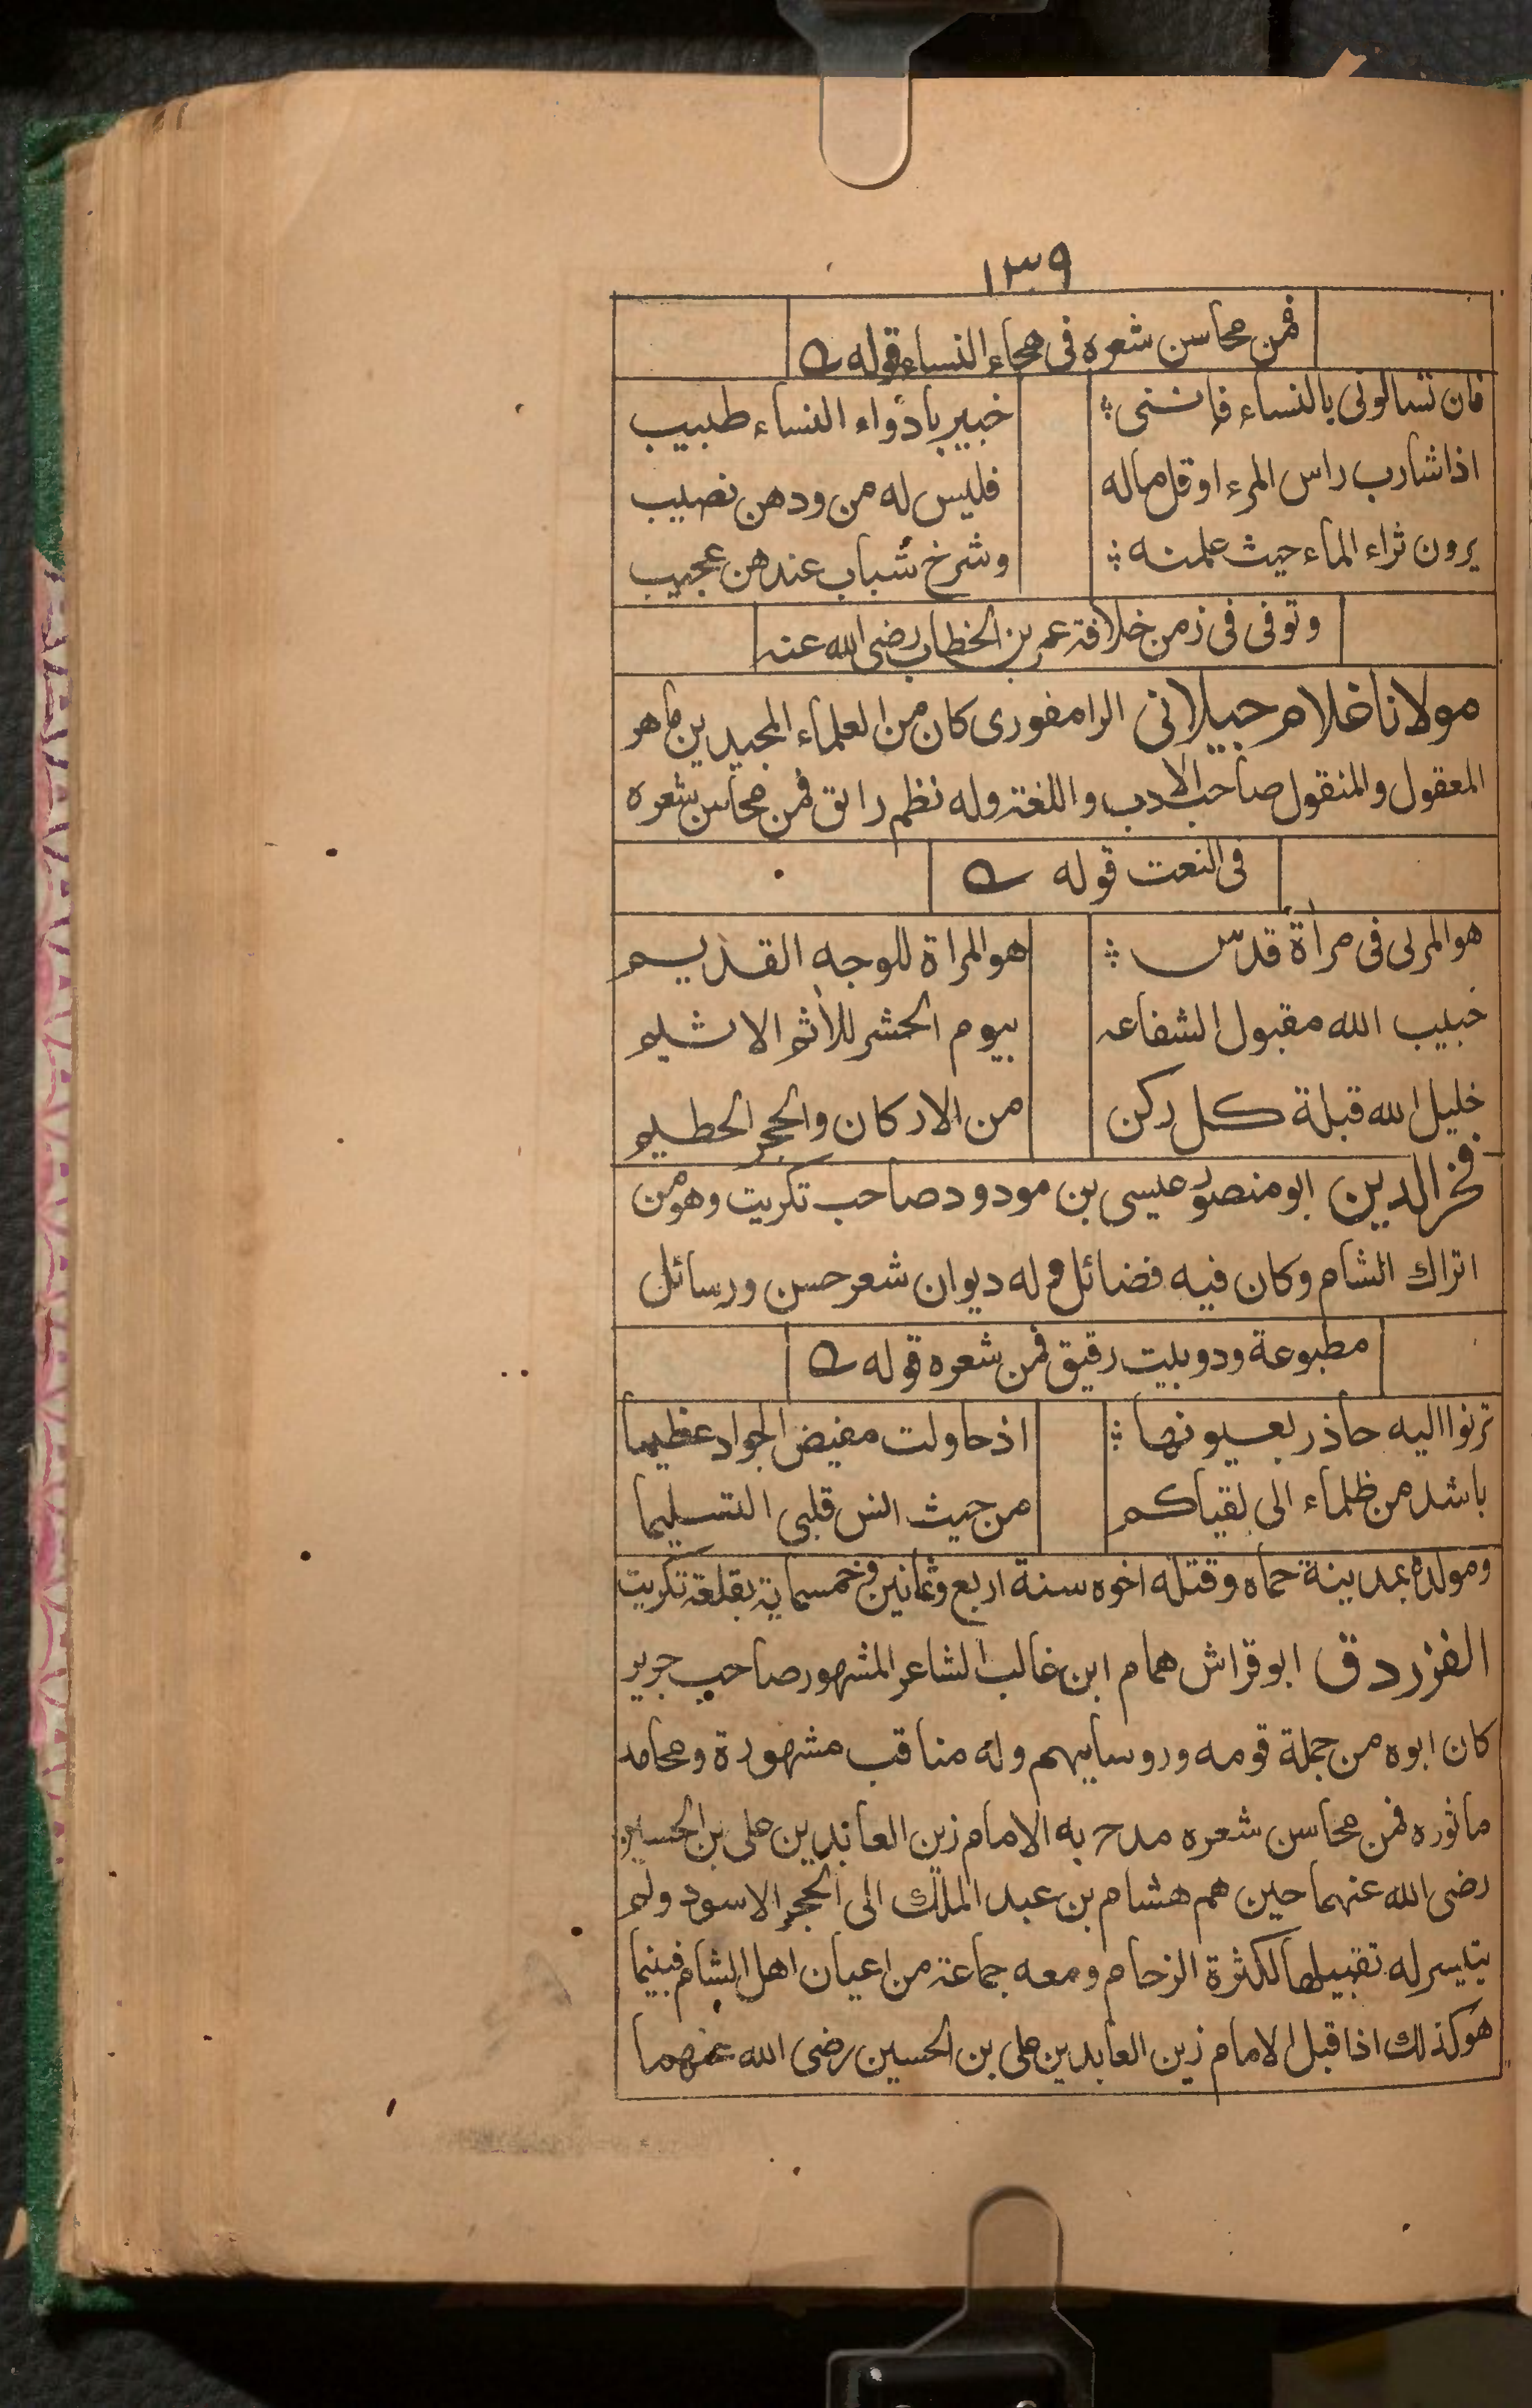 ١٣٩
فمن محاسن شعره فى هجاء النساء قوله
فان تسالونى بالنساء فاننى خبير بادواء النساء طبيب
اذا شارب راس المرء او قل ماله فليس له من ودهن نصيب
يرون ثراء الماء حيث علمنه وشرخ شباب عندهن عجيب
وتوفى فى زمن خلافة عمر بن الخطاب رضى الله عنه
مولانا غلام جيلانى الرامفورى كان من العلماء المجيدين ماهر
المعقول والمنقول صاحب الادب واللغة وله نظم رائق فمن محاسن شعره
فى النعت قوله
هو المرئى فى مرأة قدس هو المراة للوجه القديم
حبيب الله مقبول الشفاعه بيوم الحشر للأثم الاثيم
خليل الله قبلة كل ركن من الاركان والحجر الحطيم
فخر الدين ابو منصور عيسى بن مودود صاحب تكريت وهو من
اتراك الشام وكان فيه فضائل وله ديوان شعر حسن ورسائل
مطبوعة ودوبيت رقيق فمن شعره قوله
ترنوا اليه حاذر بعيونها اذ حاولت مغيض الجواد عظيما
باشد من ظلماء الى لقياكم من حيث النس قلبى التسليما
ومولده بمدينة حماه وقتله اخوه سنة اربع وثمانين وخمسماية بقلعة تكريت
الفزردق ابو قراش همام ابن غالب الشاعر المشهور صاحب جرير
كان ابوه من جملة قومه وروسايهم وله مناقب مشهورة ومحامد
ماثوره فمن محاسن شعره مدح به الامام زين العابدين على بن الحسين
رضى الله عنهما حين هم هشام بن عبد الملك الى الحجر الاسود ولم
يتيسر له تقبيلها لكثرة الزحام ومعه جماعة من اعيان اهل الشام فبينما
هو كذلك اذا قبل الامام زين العابدين على بن الحسين رضى الله عنهما